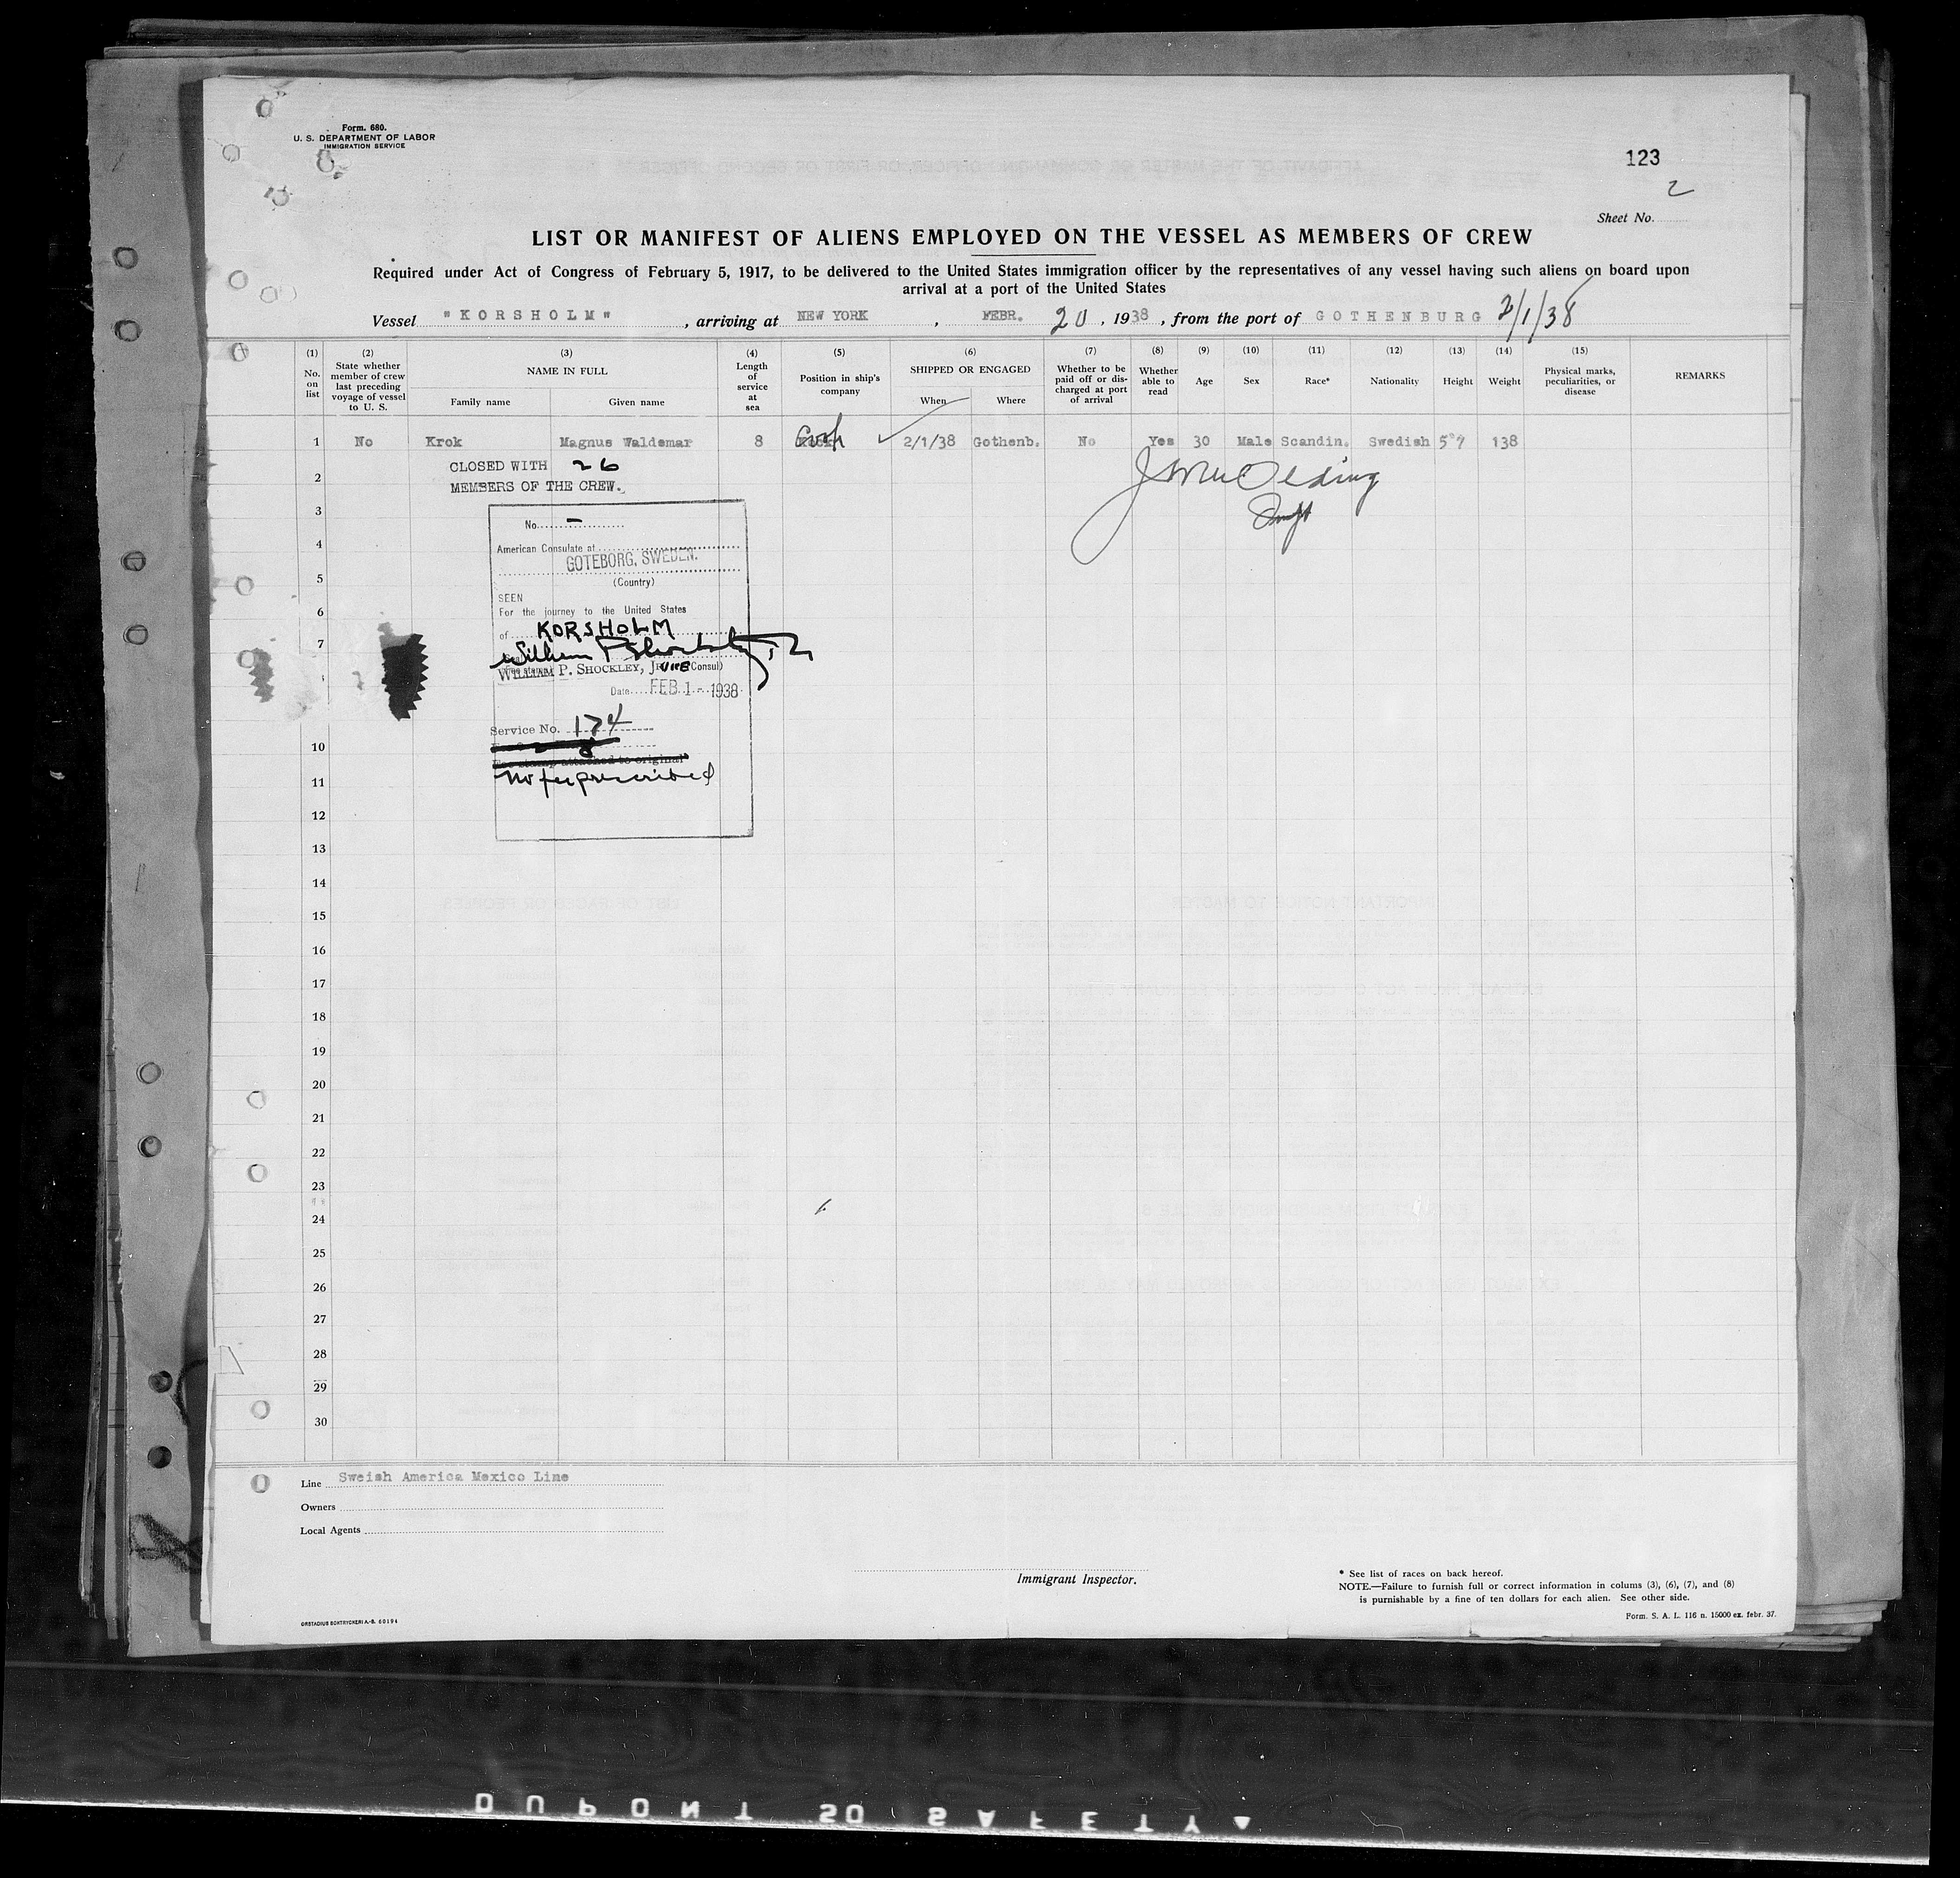 Form. 680.
U. S. DEPARTMENT OF LABOR
IMMIGRATION SERVICE
123
2
Sheet No.
LIST OR MANIFEST OF ALIENS EMPLOYED ON THE VESSEL AS MEMBERS OF CREW
Required under Act of Congress of February 5, 1917, to be delivered to the United States immigration officer by the representatives of any vessel having such aliens on board upon
arrival at a port of the United States
Vessel "KORSHOLM", arriving at NEW YORK, FEBR. 20, 1938, from the port of GOTHENBURG 2/1/38
(1) No. on list
(2) State whether member of crew last preceding voyage of vessel to U. S.
(3) NAME IN FULL
Family name
Given name
(4) Length of service at sea
(5) Position in ship's company
(6) SHIPPED OR ENGAGED
When
Where
(7) Whether to be paid off or discharged at port of arrival
(8) Whether able to read
(9) Age
(10) Sex
(11) Race*
(12) Nationality
(13) Height
(14) Weight
(15) Physical marks, peculiarities, or disease
REMARKS
1 No Krok Magnus Waldemar 8 Cook 2/1/38 Gothenb. No Yes 30 Male Scandin. Swedish 5"7 138
CLOSED WITH 26
2
MEMBERS OF THE CREW.
3
No. —
4
American Consulate at
GOTEBORG, SWEDEN.
5
(Country)
SEEN
6
For the journey to the United States
of KORSHOLM
7
William P Shockley, Jr
WILLIAM P. SHOCKLEY, JR. VICE Consul)
Date FEB 1 - 1938
Service No. 174
10
Fee stamp attached to original
No fee prescribed
11
12
13
14
15
16
17
18
19
20
21
22
23
24
25
26
27
28
29
30
Line Sweish America Mexico Line
Owners
Local Agents
Immigrant Inspector.
* See list of races on back hereof.
NOTE.—Failure to furnish full or correct information in colums (3), (6), (7), and (8)
is purnishable by a fine of ten dollars for each alien. See other side.
ORSTADIUS BOKTRYCKERI A.-B. 60194
Form. S. A. L. 116 n. 15000 ex. febr. 37.
DUPONT 50 SAFETY